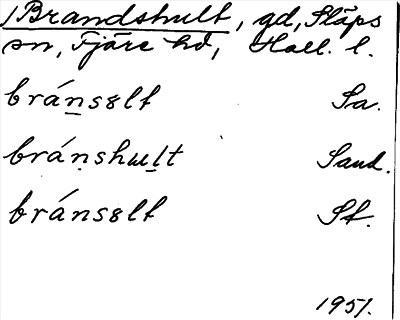 Brandshult, gd, Släps
sn, Fjäre hd, Hall. l.
brá<u>n</u>sȣlt Sa.
bráṇshɯḻt Sand.
bránsȣlt St.
1951.